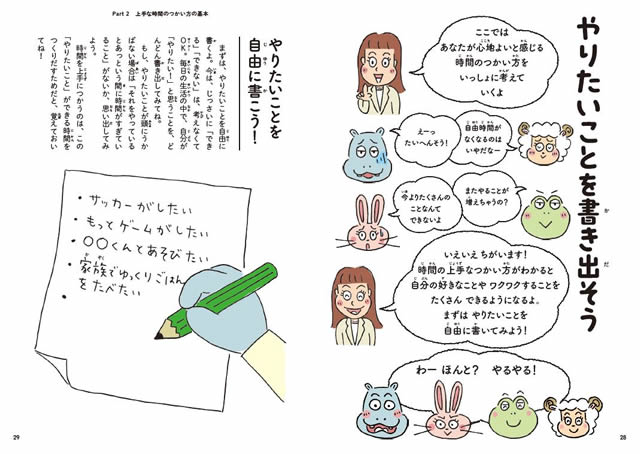 やりたいことを書き出そう
ここでは
あなたが心地よいと感じる
時間のつかい方を
いっしょに考えて
いくよ
自由時間が
なくなるのは
いやだな～
えーっ
たいへんそう！
またやることが
増えちゃうの？
今よりたくさんの
ことなんて
できないよ
いえいえ ちがいます！
時間の上手なつかい方がわかると
自分の好きなことや ワクワクすることを
たくさん できるようになるよ。
まずは やりたいことを
自由に書いてみよう！
わー ほんと？ やるやる！
28
Part 2 上手な時間のつかい方の基本
やりたいことを
自由に書こう！
まずは、やりたいことを自由に
書くよ。今は、じっさいに「でき
る」「できない」は、考えなくて
OK。毎日の生活の中で、自分が
「やりたい！」と思うことを、ど
んどん書き出してみてね。
もし、やりたいことが頭にうか
ばない場合は、「それをやっている
とあっという間に時間がすぎてい
ること」がないか、思い出してみ
よう。
時間を上手につかうのは、この
「やりたいこと」ができる時間を
つくりだすためだと、覚えておい
てね！
・サッカーがしたい
・もっとゲームがしたい
・〇〇くんとあそびたい
・家族でゆっくりごはん
をたべたい
・
29